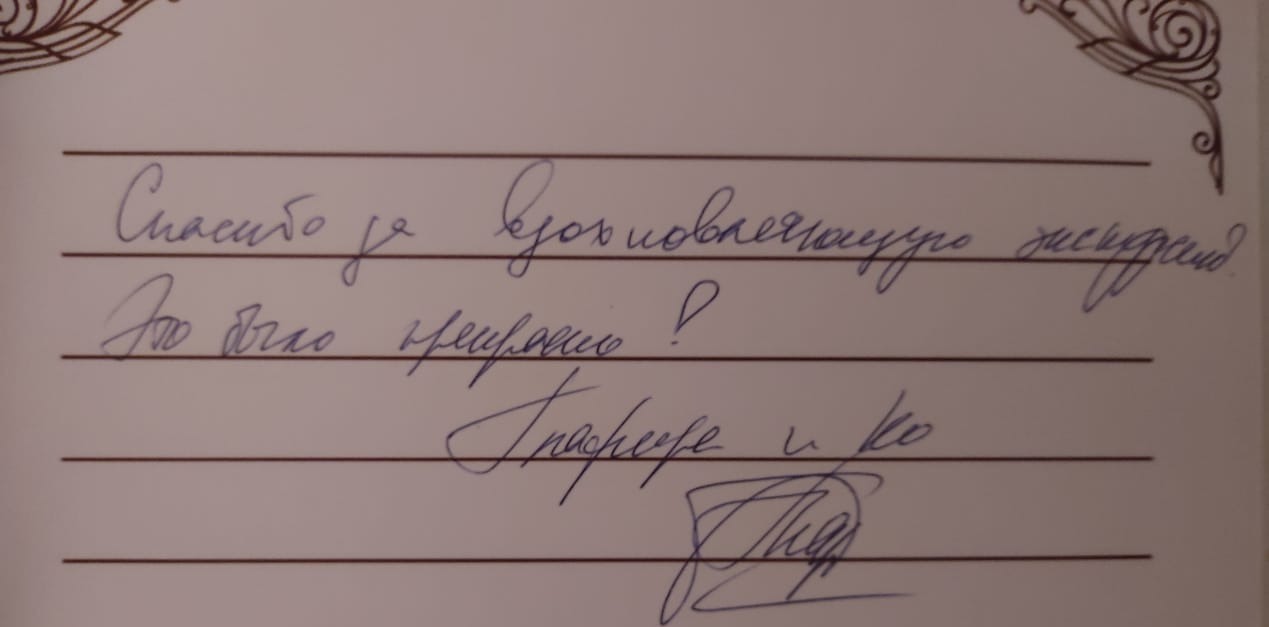 Спасибо за вдохновляющую экскурсию.
Это было прекрасно!
и Ко